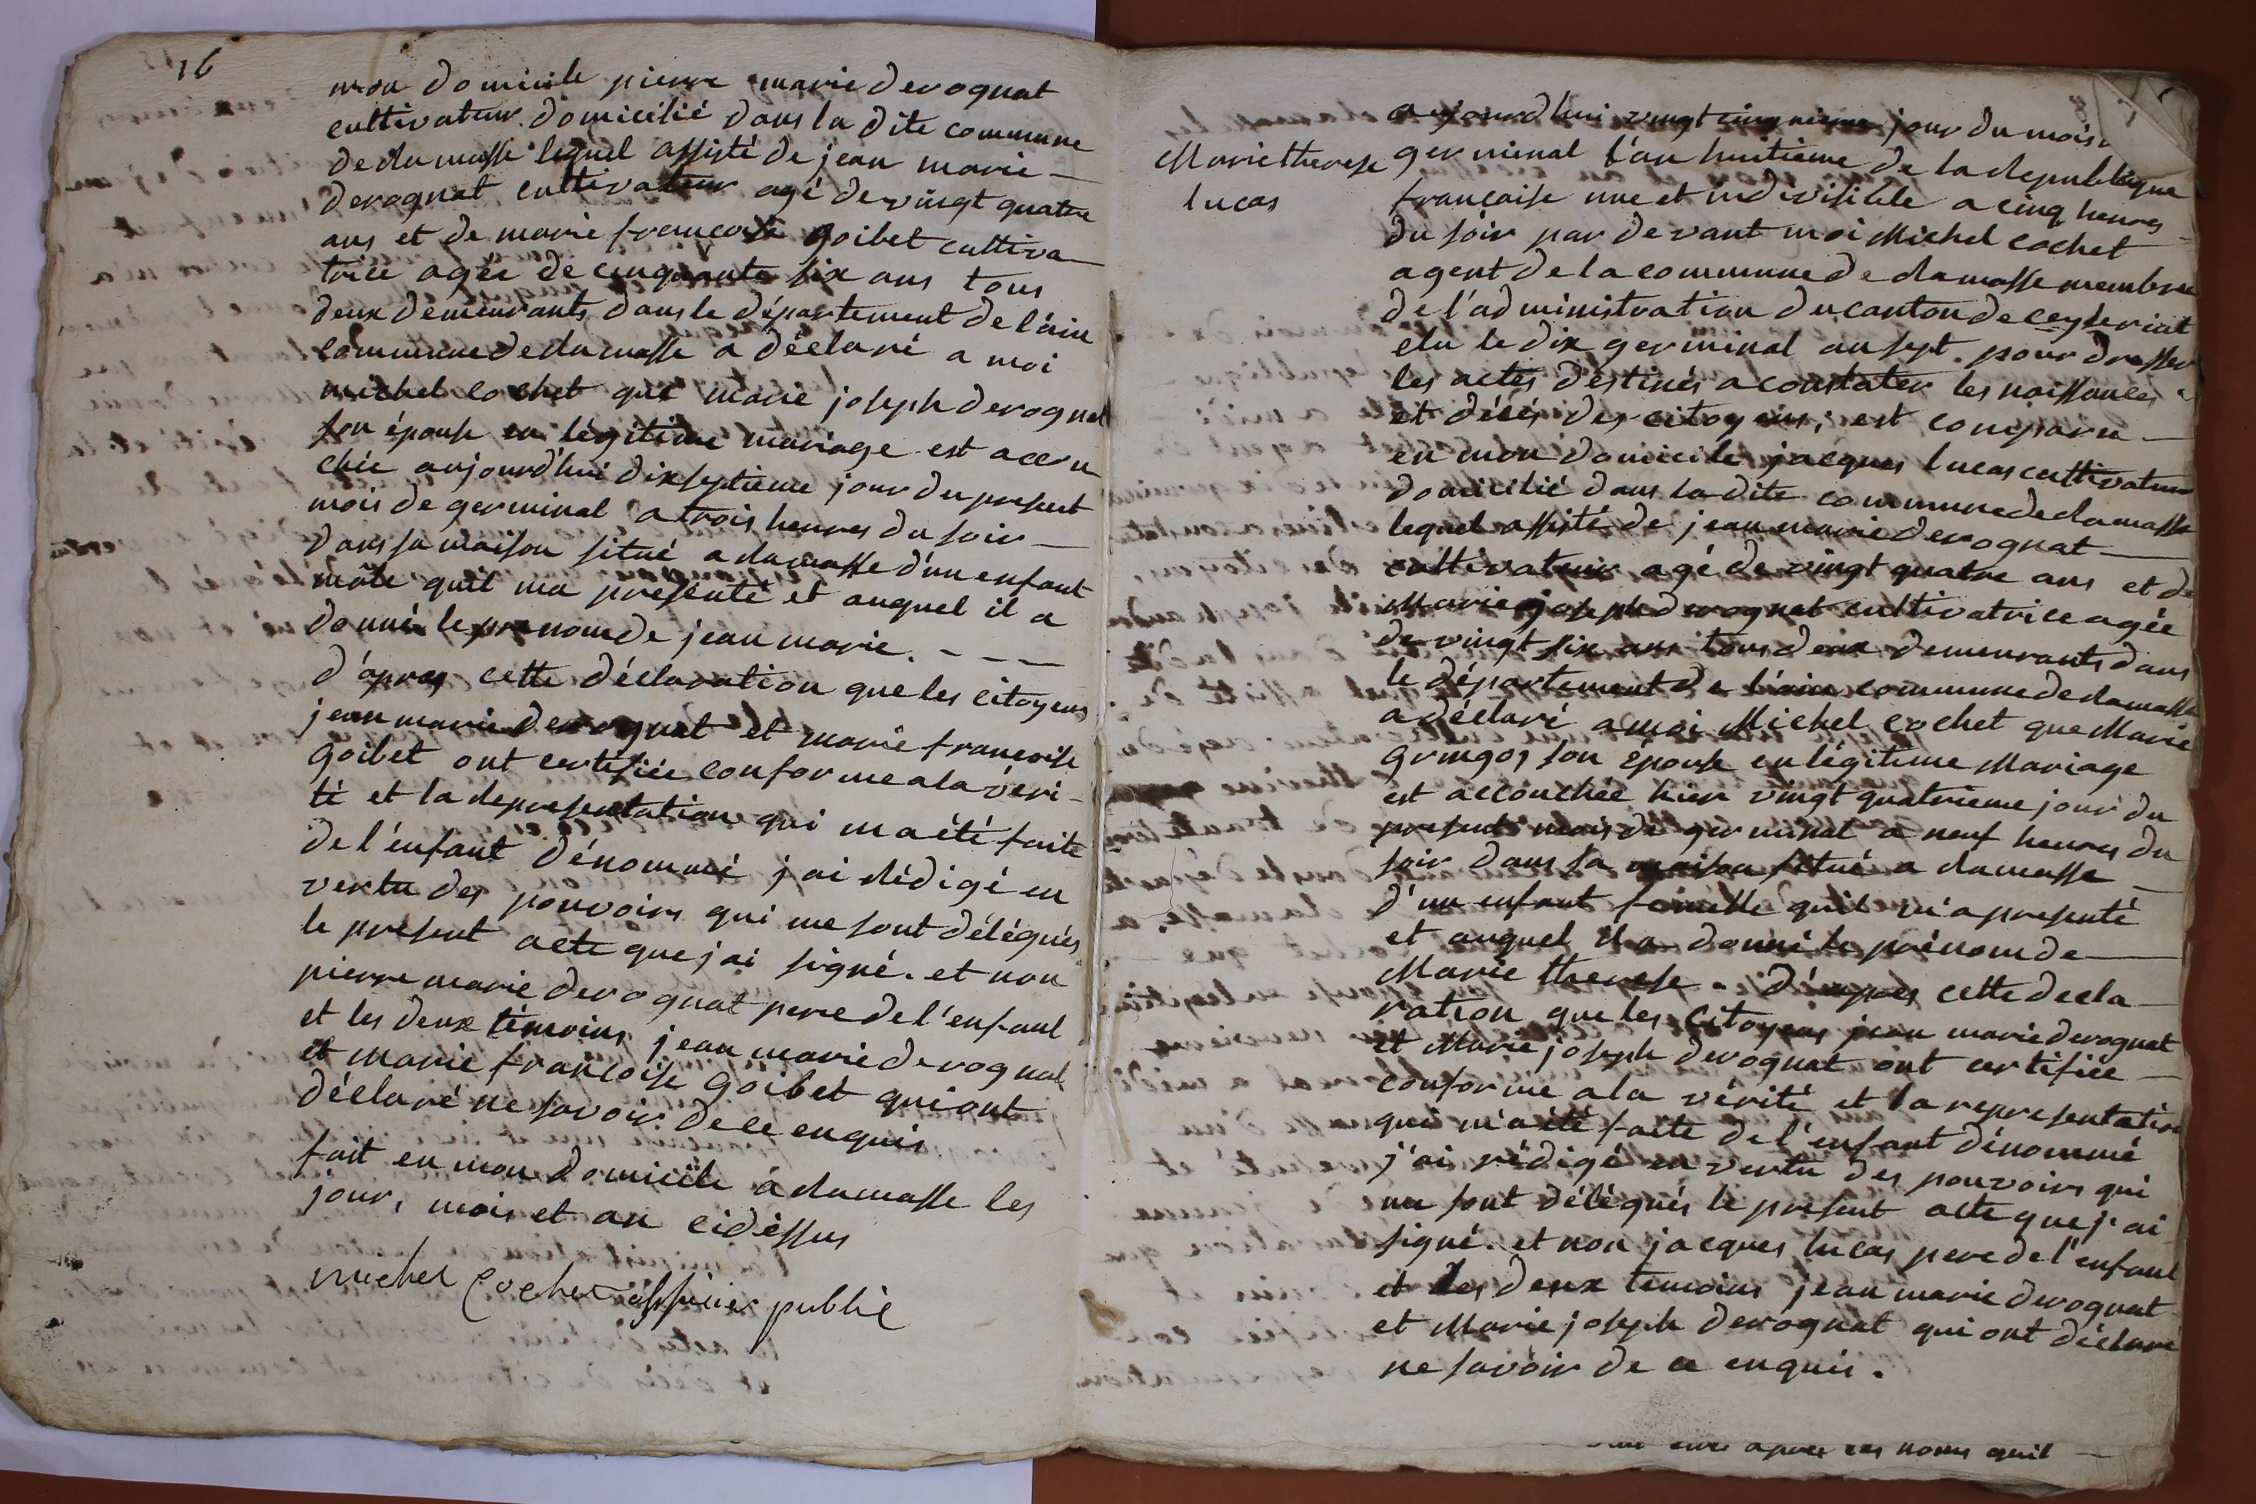 16
mon domicile pierre marie derognat
cultivateur domicilié dans la dite commune
de dumasse lequel assisté de jean marie
derognat cultivateur agé de vingt quatre
ans et de marie francoise goibet cultiva
trice agée de cinquante six ans tous
deux demeurants dans le département de l'ain
commune de dumasse a déclaré a moi
michel cochet que marie joseph derognat
son épouse en légitime mariage est accou
chée aujourd'hui dix septieme jour du present
mois de germinal a trois heures du soir
dans sa maison situé a dumasse d'un enfant
mâle quil ma presenté et auquel il a
donné le prenom de jean marie. - - -
d'apres cette déclaration que les citoyens
jean marie derognat et marie francoise
goibet ont certifiée conforme a la véri-
té et la representation qui m a été faite
de l'enfant dénommé j ai rédigé en
vertu des pouvoirs qui me sont délégués
le present acte que j ai signé. et non
pierre marie derognat pere de l'enfant
et les deux témoins jean marie derognat
et marie francoise goibet qui ont
déclaré ne savoir de ce enquis
fait en mon domicile á dumasse les
jour, mois et an cidessus
michel Cochet officier public
Marie therese
lucas
aujourdhui vingt cinquieme jour du mois
germinal l'an huitieme de la republique
francaise une et indivisible a cinq heures
du soir par devant moi Michel cochet
agent de la commune de dumasse membre
de l'administration du canton de ceyseriat
elu le dix germinal an sept. pour dresser
les actes destinés a constater les naissances
et décés des citoyens, est comparu
en mon domicile jacques lucas cultivateur
domicilié dans la dite commune de dumasse
lequel assisté de jean marie derognat
cultivateur agé de vingt quatre ans et de
Marie joseph derognat cultivatrice agée
de vingt six ans tous deux demeurants dans
le département de l'ain commune de dumasse
a déclaré a moi Michel cochet que Marie
gringoz son épouse en légitime Mariage
est accouchée hier vingt quatrieme jour du
present mois de germinal a neuf heures du
soir dans sa maison situé a dumasse
d'un enfant femelle quil m'a presenté
et auquel il a donné le prénom de
Marie therese. D'apres cette decla
ration que les Citoyens jean marie derognat
et Marie joseph derognat ont certifiée
conforme a la vérité et la representation
qui m'a été faite de l'enfant dénommé
j'ai rédigé en vertu des pouvoirs qui
me sont délégués le present acte que j'ai
signé. et non jacques lucas pere de l'enfant
et les deux temoins jean marie derognat
et Marie joseph derognat qui ont déclaré
ne savoir de ce enquis.
apres ces noms quil